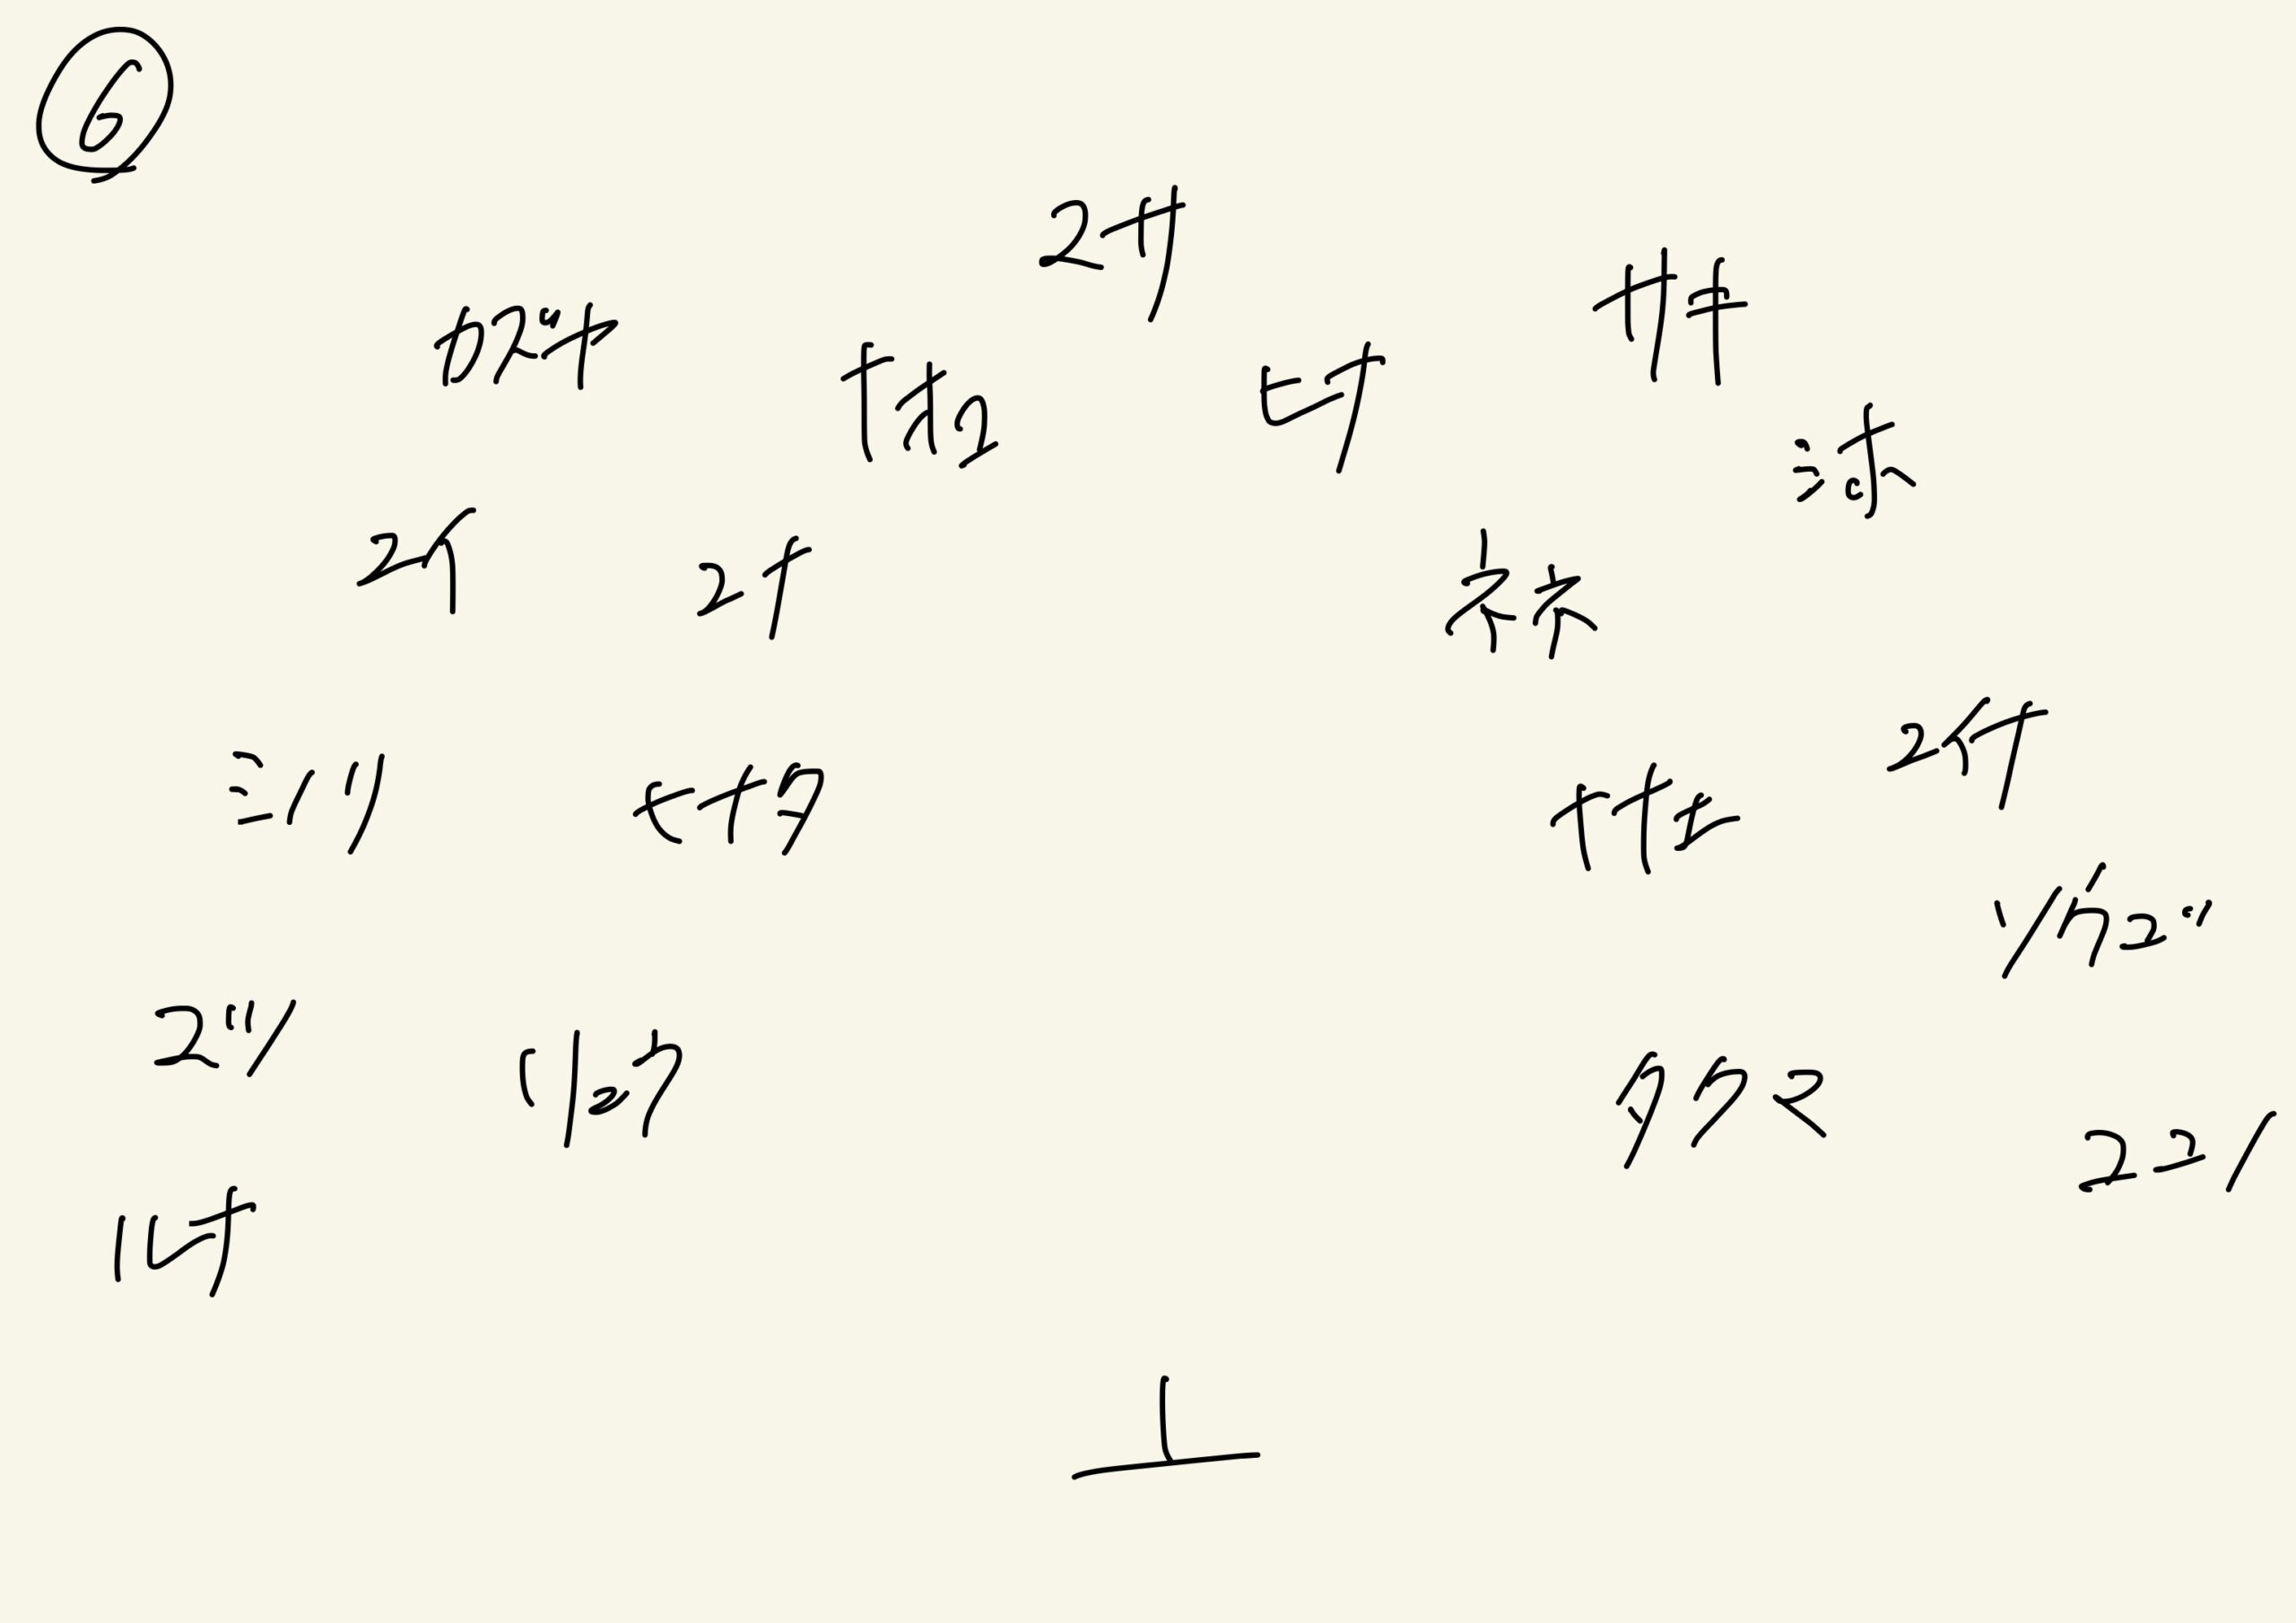 ⑥
ユサ
カズヤ
サキ
ナオユ
ヒナ
ミホ
ユイ
ユナ
ネネ
ユイナ
ミノリ
モナタ
ナナセ
ソウゴ
ユツ
リュウ
タクマ
ユユノ
ハルオ
⊥